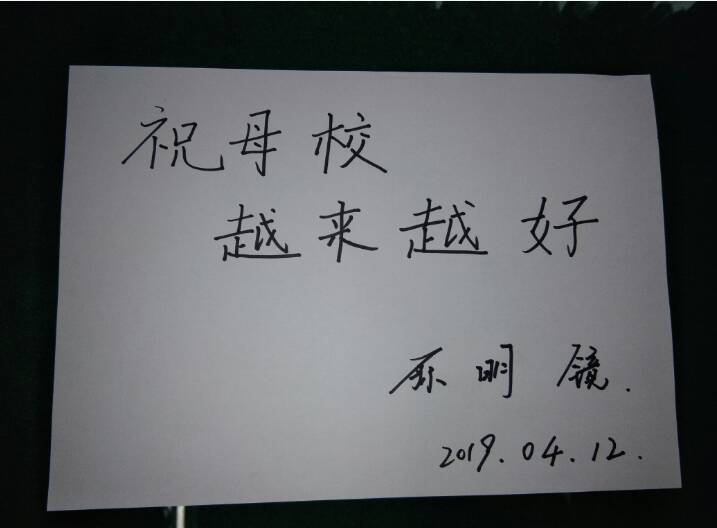 祝母校
越来越好
明镜.
2019.04.12.